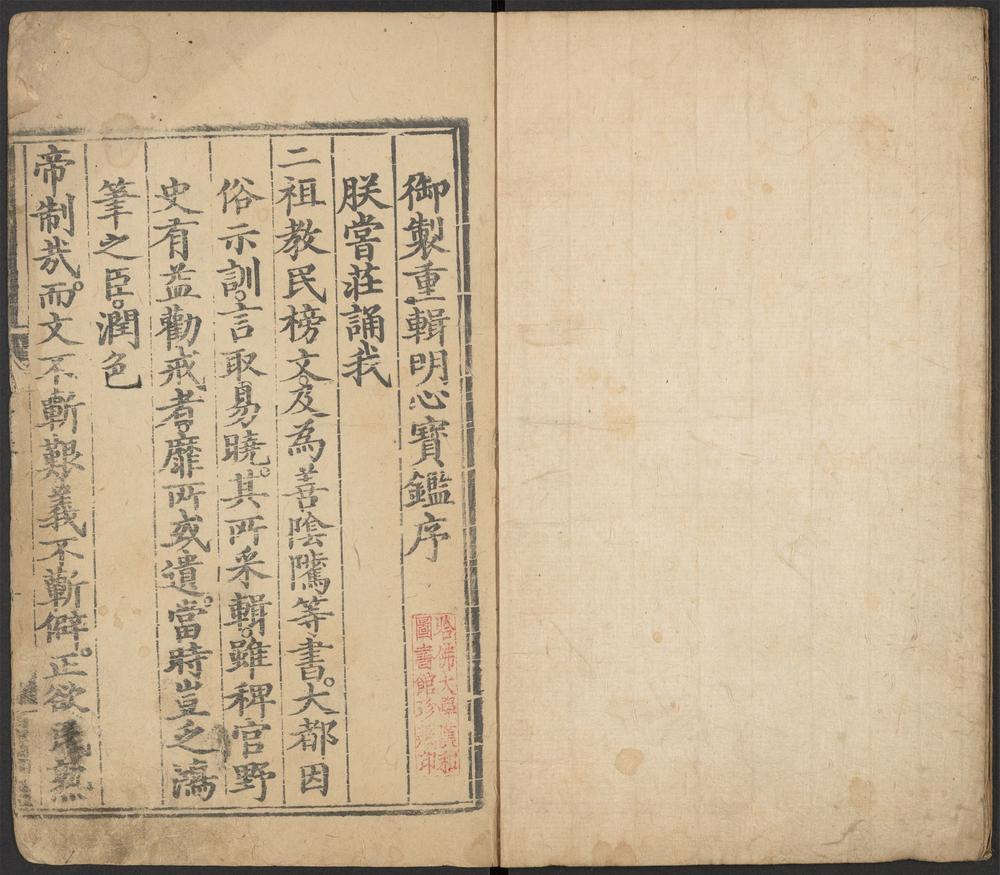 御製重輯明心寶鑑序
朕嘗莊誦我
二祖教民榜文。及為善陰隲等書。大都因
俗示訓。言取易曉。其所采輯。雖稗官野
史有益勸戒者。靡所或遺。當時豈乏瀉
筆之臣。潤色
帝制哉。而文不斬艱義不斬僻。正欲
哈佛大學漢和
圖書館珍藏印